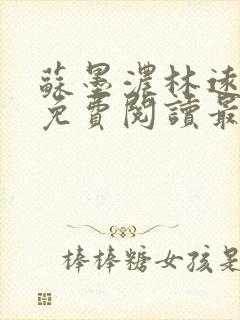 蘇墨濃林逑
免費閱讀最
棒棒糖女孩是